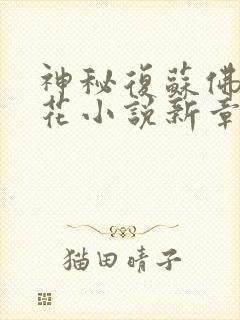 神秘復蘇佛
花小說新章
猫田晴子